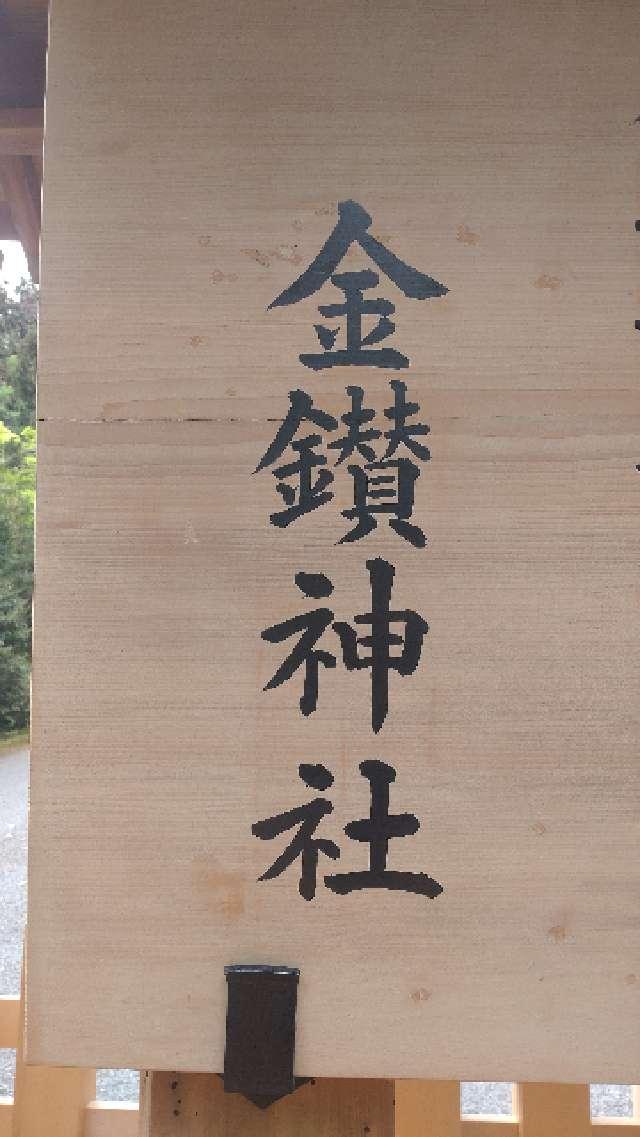 金鑚神社